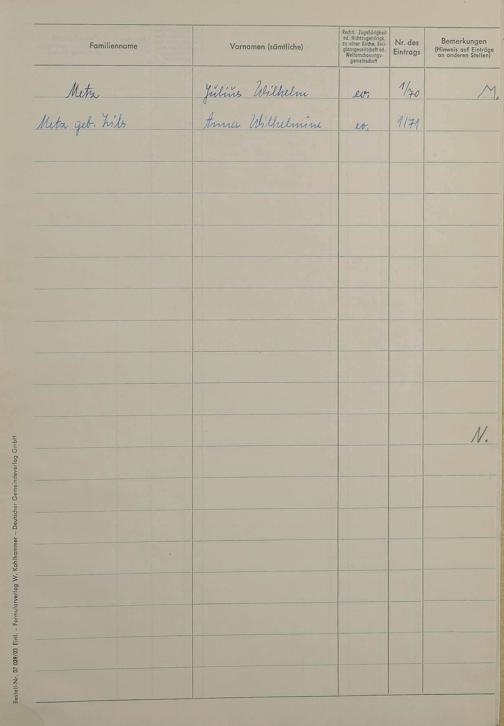 Familienname
Vornamen (sämtliche)
Rechtl. Zugehörigkeit
od. Nichtzugehörigk.
zu einer Kirche, Reli-
gionsgesellschaft od.
Weltanschauungs-
gemeinschaft
Nr. des
Eintrags
Bemerkungen
(Hinweis auf Einträge
an anderen Stellen)
Metz Julius Wilhelm ev. 1/70 M.
Metz geb. Anna Wilhelmine ev. 1/71
N.
Bestell-Nr. 07 039/03 Einl. – Formularverlag W. Kohlhammer – Deutscher Gemeindeverlag GmbH